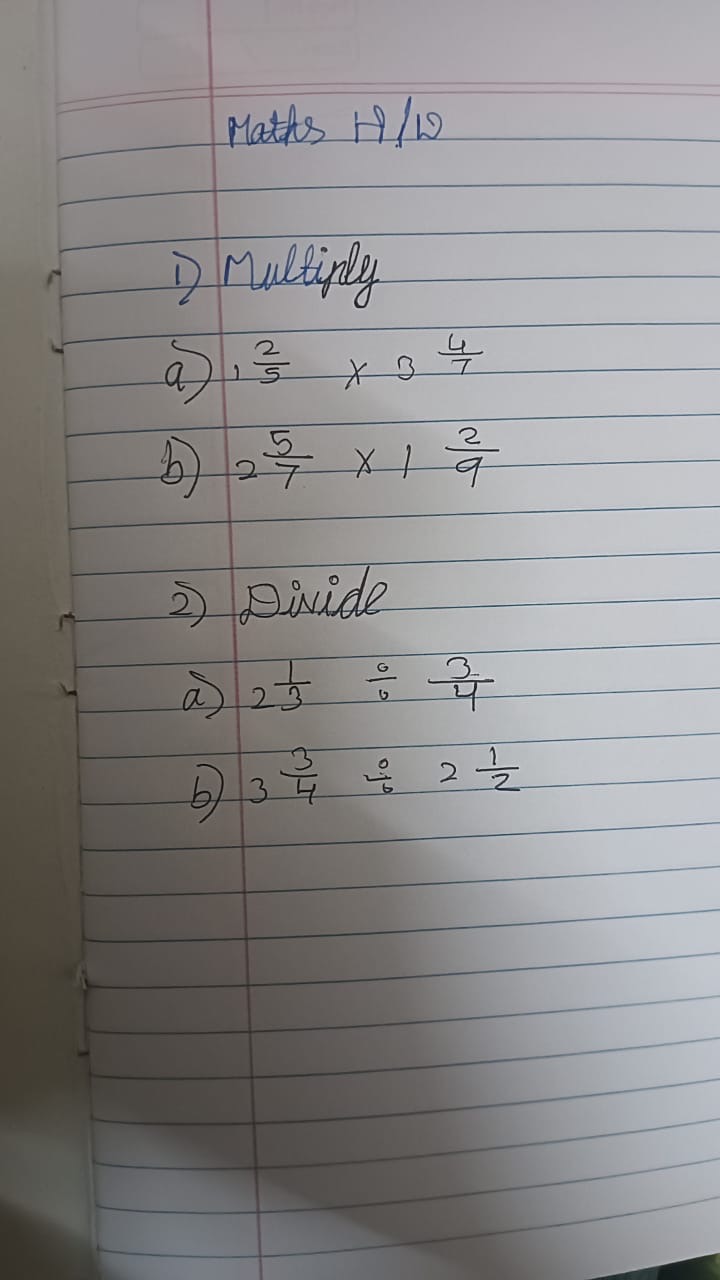 Maths H/W
1) Multiply
a) 1 2/5 × 3 4/7
b) 2 5/7 × 1 2/9
2) Divide
a) 2 1/3 ÷ 3/4
b) 3 3/4 ÷ 2 1/2